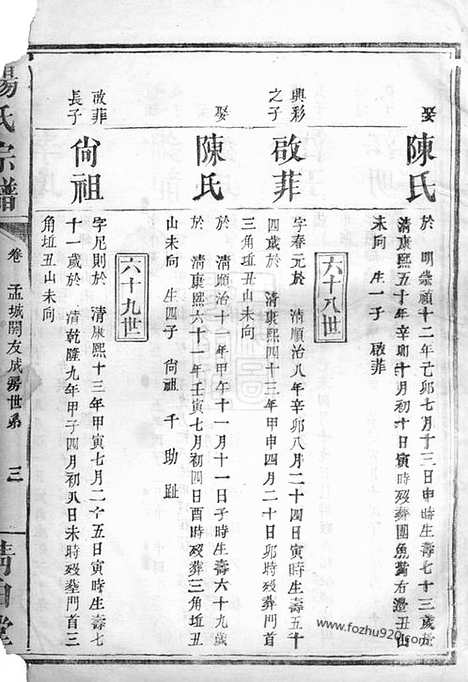 娶
陳氏
於 明崇禎十二年己卯七月十三日申時生壽七十三歲於
清康熙五十年辛卯十月初十日寅時歿葬團魚觜右邊丑山
未向 生一子 啟菲
六十八世
興彩
之子
啟菲
字春元於 清順治八年辛卯八月二十四日寅時生壽五十
四歲於 清康熙四十三年甲申四月二十日卯時歿葬
三角坵丑山未向
娶
陳氏
於 清順治十一年甲午十一月十一日子時生壽六十九歲
於 清康熙六十一年壬寅七月初四日酉時歿葬三角坵丑
山未向 生四子 尙祖 千 助 趾
六十九世
啟菲
長子
尙祖
字尼則於 清康熙十三年甲寅七月二十五日寅時生壽七
十一歲於 清乾隆九年甲子四月初八日未時歿塟門首三
角坵丑山未向
楊氏宗譜
卷 孟城開友成房世系 三
清白堂
www.fozhu920.com